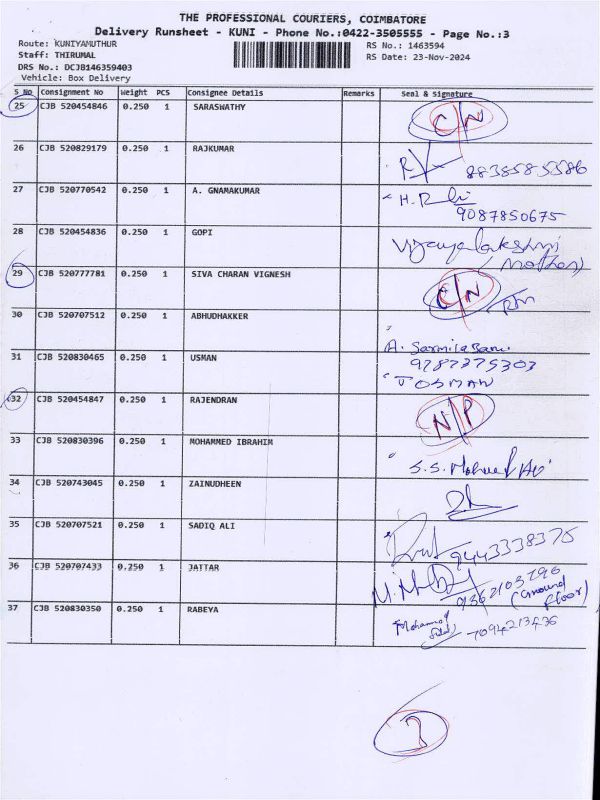 THE PROFESSIONAL COURIERS, COIMBATORE
Delivery Runsheet - KUNI - Phone No.:0422-3505555 - Page No.:3
Route: KUNIYAMUTHUR RS No.: 1463594
Staff: THIRUMAL RS Date: 23-Nov-2024
DRS No.: DCJB146359403
Vehicle: Box Delivery
S NO Consignment No Weight PCS Consignee Details Remarks Seal & Signature
25 CJB 520454846 0.250 1 SARASWATHY C/N
26 CJB 520829179 0.250 1 RAJKUMAR
27 CJB 520770542 0.250 1 A. GNMAKUMAR
9087850675
28 CJB 520454836 0.250 1 GOPI Vijayalakshmi
(mother)
29 CJB 520777781 0.250 1 SIVA CHARAN VIGNESH C/N
30 CJB 520707512 0.250 1 ABHUDHAKKER
A. Sarmila Banu
31 CJB 520830465 0.250 1 USMAN
32 CJB 520454847 0.250 1 RAJENDRAN N/P
33 CJB 520830396 0.250 1 MOHAMMED IBRAHIM
34 CJB 520743045 0.250 1 ZAINUDHEEN
35 CJB 520707521 0.250 1 SADIQ ALI 9443338375
36 CJB 520707433 0.250 1 JATTAR
(Ground
floor)
37 CJB 520830350 0.250 1 RABEYA Mohammed
7094213436
3